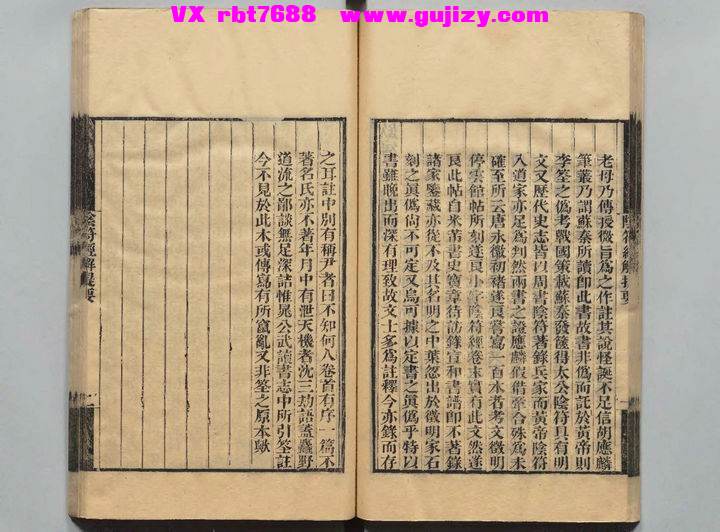 VX rbt7688 www.gujizy.com
老母乃傳授微旨為之作註其說怪誕不足信胡應麟
筆叢乃謂蘇秦所讀卽此書故書非偽而託於黃帝則
李筌之偽考戰國策載蘇秦發篋得太公陰符具有明
文又歷代史志皆以周書陰符著錄兵家而黃帝陰符
入道家亦足為判然兩書之證應麟假借牽合殊為未
確至所云唐永徽初褚遂良嘗寫一百本者考文徵明
停雲館帖所刻遂良小字陰符經卷末實有此文然遂
良此帖自米芾書史寶章待訪錄宣和書譜卽不著錄
諸家鑒藏亦從不及其名明之中葉忽出於徵明家石
刻之眞偽尚不可定又烏可據以定書之眞偽乎特以
書雖晚出而深有理致故文士多為註釋今亦錄而存
之耳註中別有稱尹者曰不知何人卷首有序一篇不
著名氏亦不著年月中有泄天機者沈三劫語蓋粗野
道流之鄙談無足深詰惟晁公武讀書志中所引筌註
今不見於此本或傳寫有所竄亂又非筌之原本歟
陰符經解提要